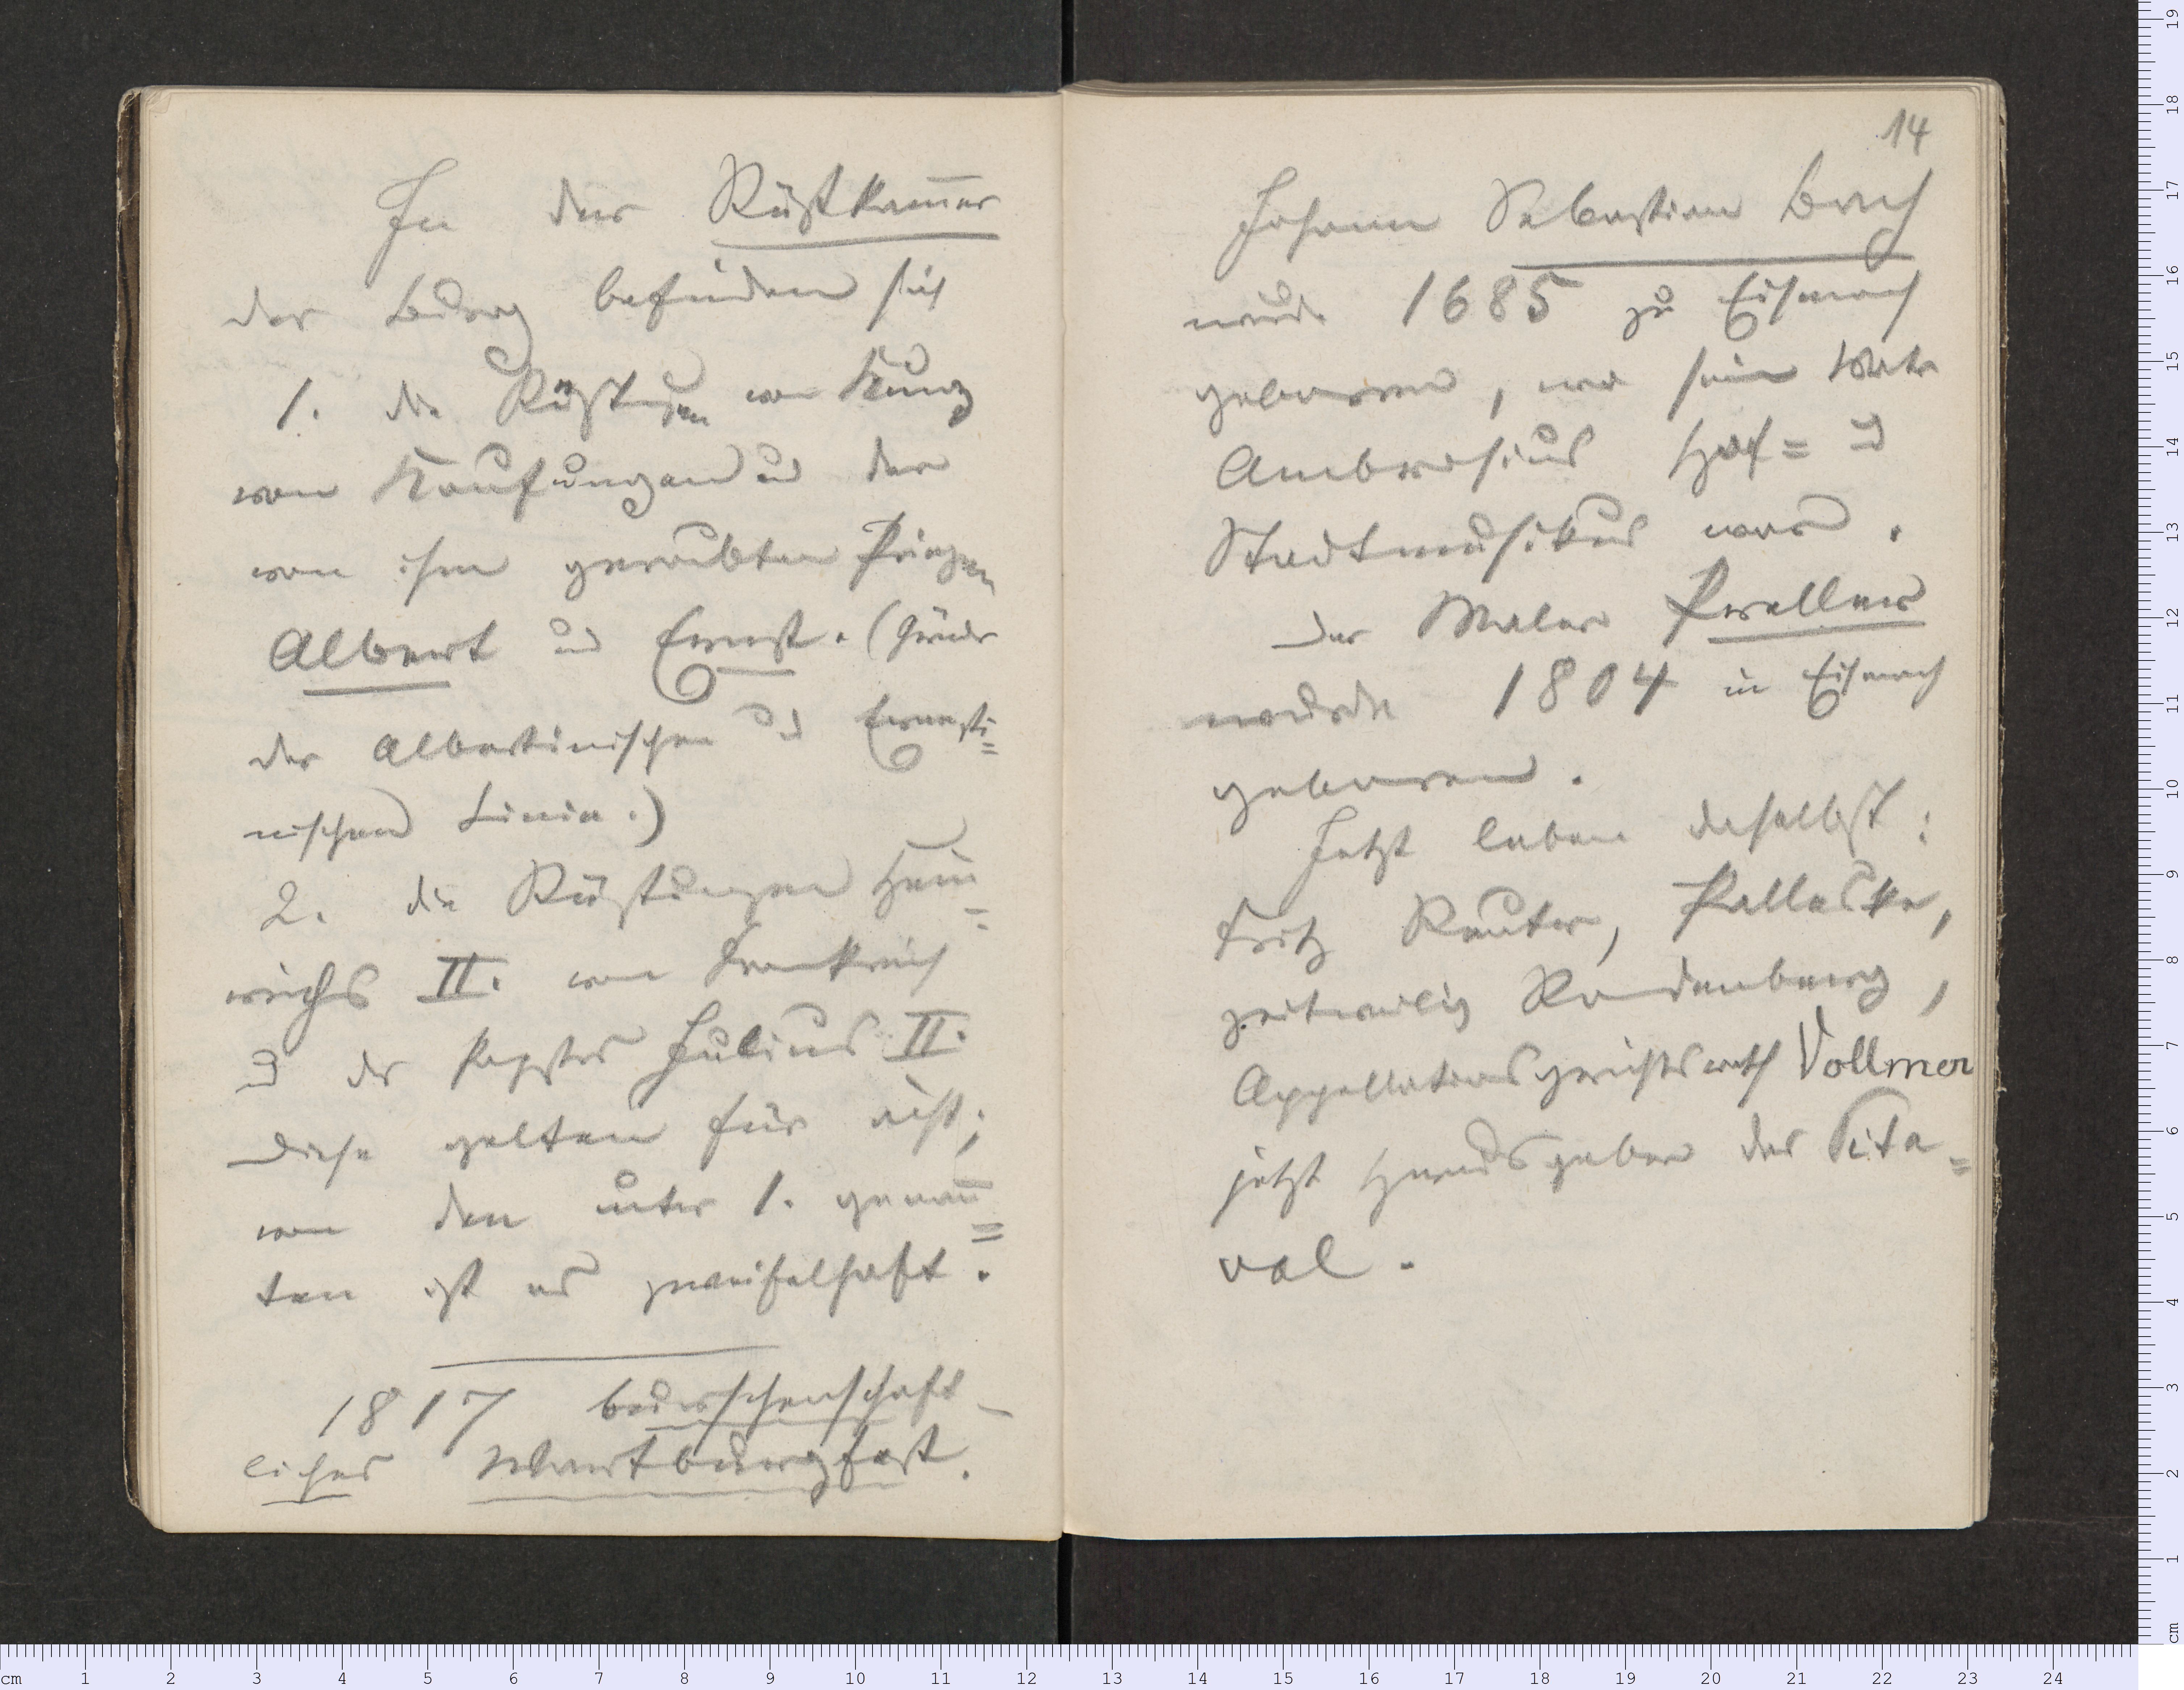 In der Rüstkam̅er
der Burg befinden sich
1. die Rüstungen von Kunz
von Kaufungen u der
von ihm geraubten Prinzen
Albert u Ernst. (Gründer
der Albertinischen u Ernesti=
nischen Linie.)
2. die Rüstungen Hein=
richs II. von Frankreich
u des Papstes Julius II.
Diese gelten für ächt;
von den unter 1. genan̅=
ten ist es zweifelhaft.
1817 burschenschaft-
liches Wartburgfest.
14
Johann Sebastian Bach
wurde 1685 zu Eisenach
geboren, wo sein Vater
Ambrosius Hof= u
Stadtmusikus war.
Der Maler Preller
wurde 1804 in Eisenach
geboren.
Jetzt leben daselbst:
Fritz Reuter, Palleske,
zeitweilig Rodenberg,
Appellationsgerichtsrath Vollmer
jetzt Herausgeber des Pita=
val.